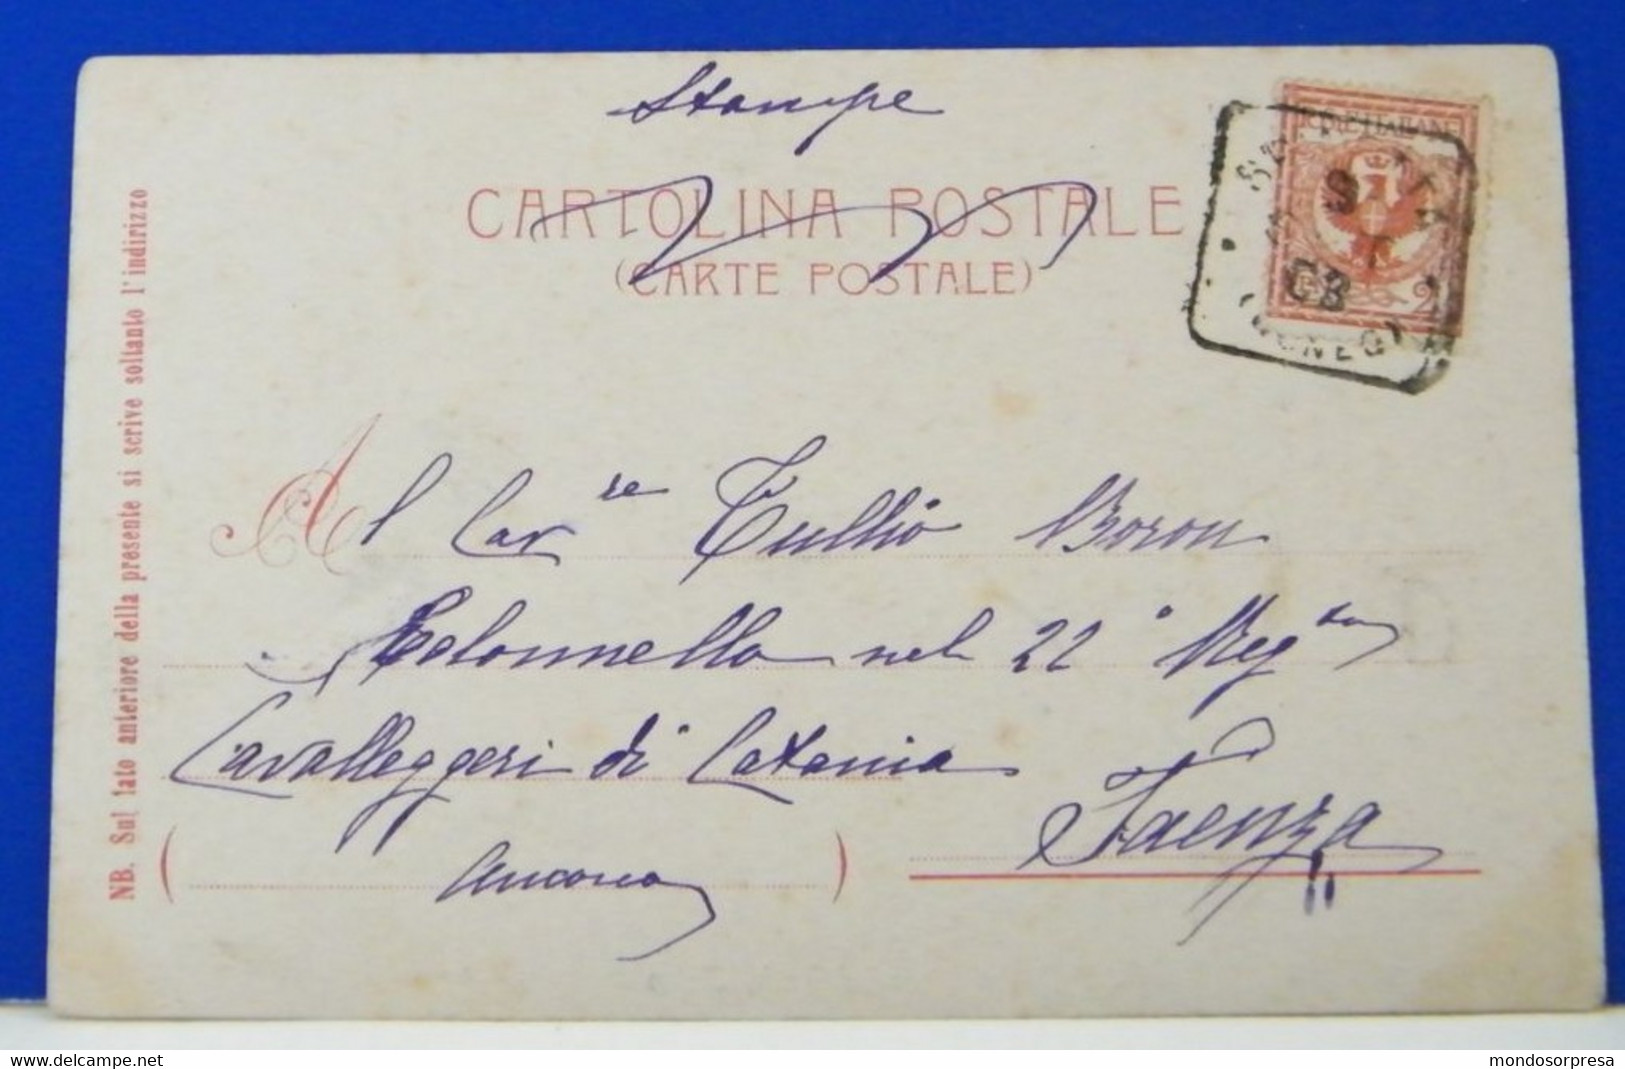 Stampe
CARTOLINA POSTALE
(CARTE POSTALE)
POSTE ITALIANE
2
9
03
Al Cav.re Tullio Boron
Colonnello nel 22° Reg.to
Cavalleggeri di Catania
Faenza
(Ancona)
NB. Sul lato anteriore della presente si scrive soltanto l'indirizzo
delcampe.net
mondosorpresa